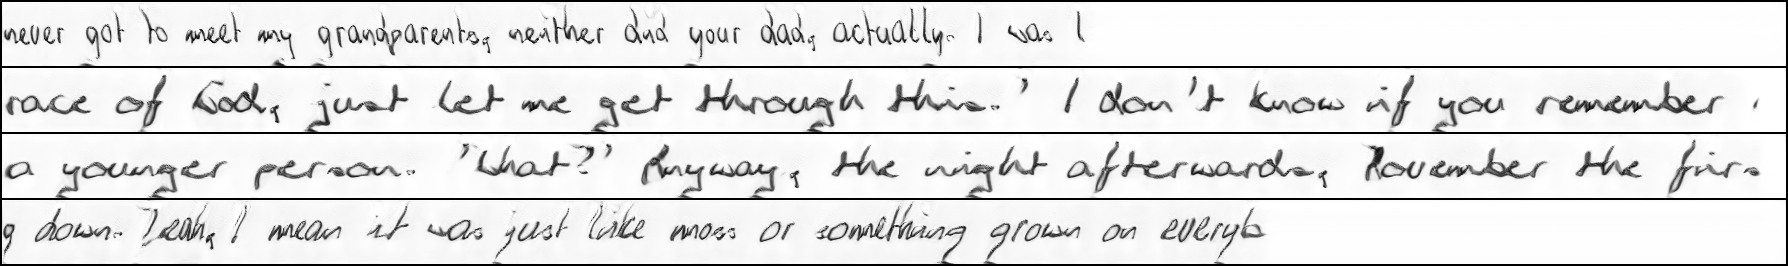 never got to meet my grandparents, neither did your dad, actually. I was l
race of God, just let me get through this.' I don't know if you remember .
a younger person. 'What?' Anyway, the night afterwards, November the firs
g down. Yeah, I mean it was just like moss or something grown on everyb